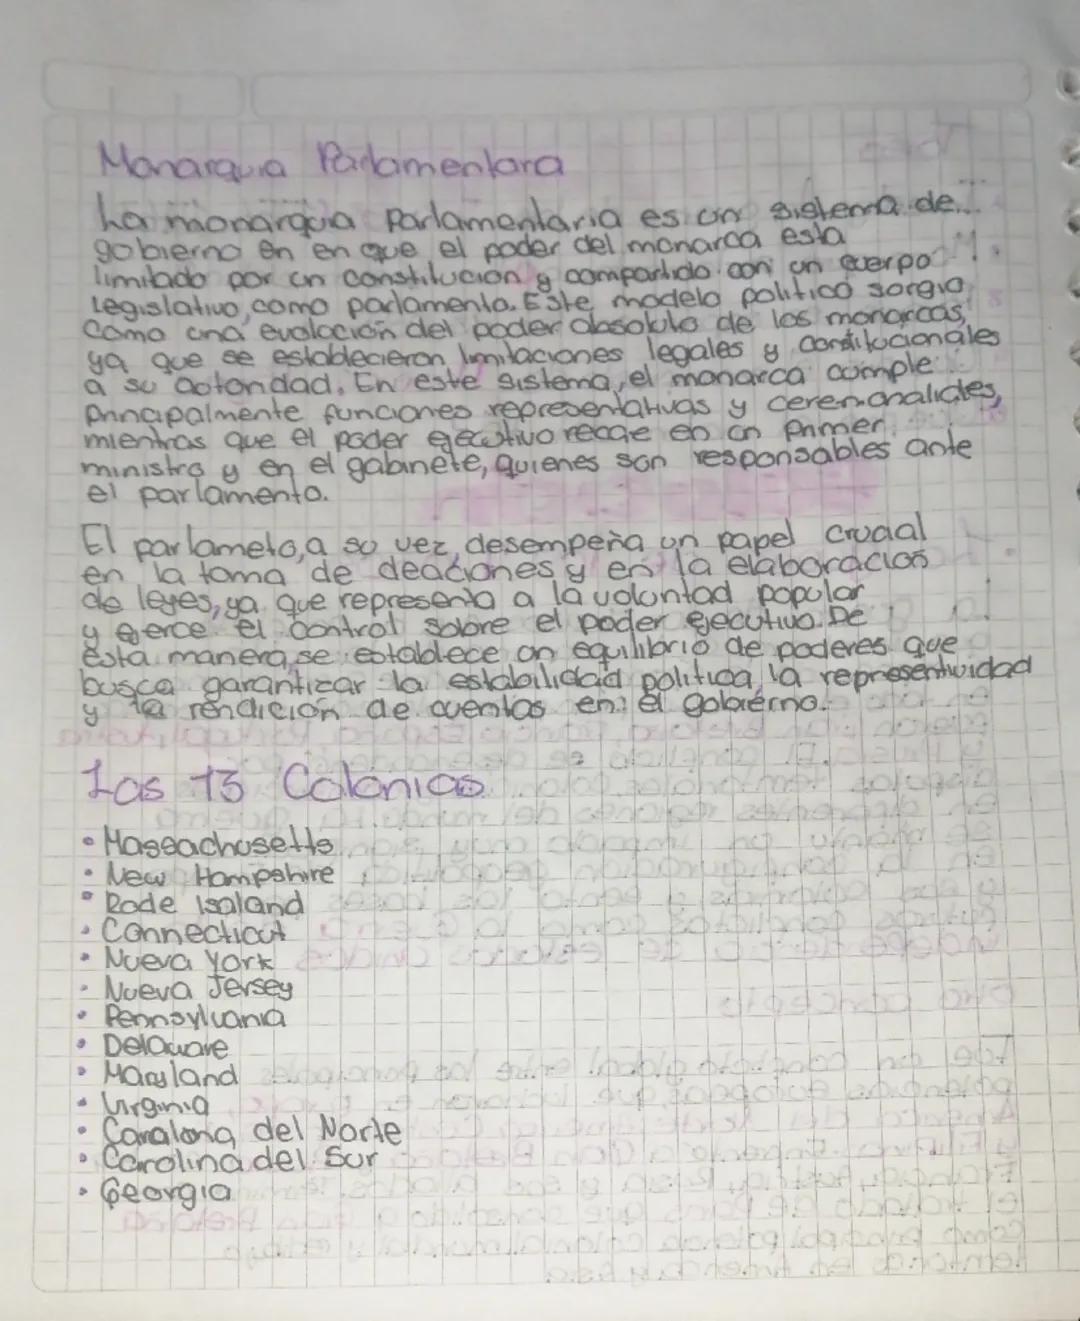 Monarquia Parlamentara
La monarquia parlamentaria es un sistema de
gobierno en en que el poder del monarca esta
limitado por un constitucion y compartido con un cuerpo
legislativo, como parlamento. Este modelo politico surgio
como una evolucion del poder absoluto de los monarcas,
ya que se establecieron limitaciones legales y constitucionales
a su autoridad. En este sistema, el monarca cumple
principalmente funciones representativas y ceremonialides,
mientras que el poder ejecutivo recae en un primer
ministro y en el gabinete, quienes son responsables ante
el parlamento.
El parlameto, a su vez, desempeña un papel crucial
en la toma de deaciones y en la elaboracion
de leyes, ya que representa a la voluntad popular
y ejerce el control sobre el poder ejecutivo. De
esta manera, se establece un equilibrio de poderes que
busca garantizar la estabilidad politica, la representividad
y la rendicion de cuentas en el gobierno.
Las 13 Colonias
• Massachusetts
• New Hampshire
• Rode Isaland
• Connecticut
• Nueva York
• Nueva Jersey
• Pennsylvania
• Delaware
• Maryland
• Virginia
• Caralona del Norte
• Carolina del Sur
• Georgia